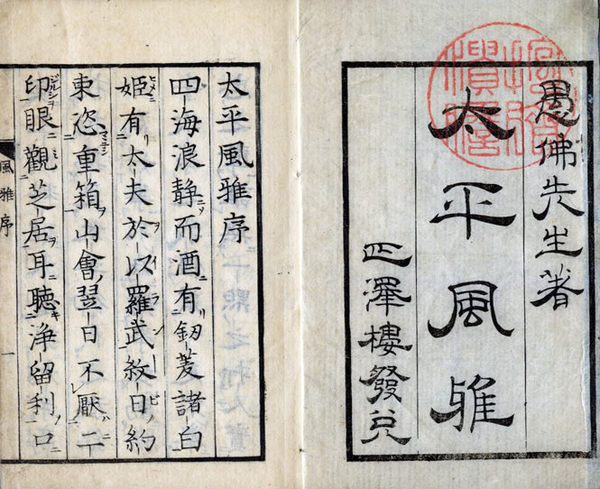 愚佛先生著
太平風雅
四澤樓發兌
太平風雅序
四海浪靜而酒有釼菱諸白
姫有太夫於以羅武紋日約
束恣重箱山會翌日不厭二
印眼觀芝居耳聽浄留利口
風雅序
一